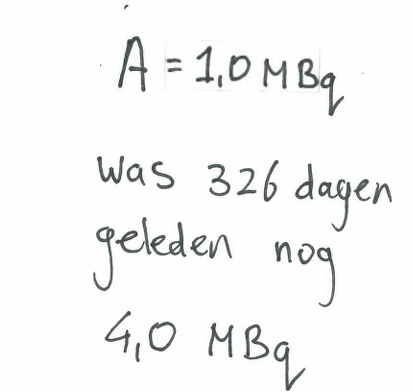 A = 1,0 MBq
was 326 dagen
geleden nog
4,0 MBq